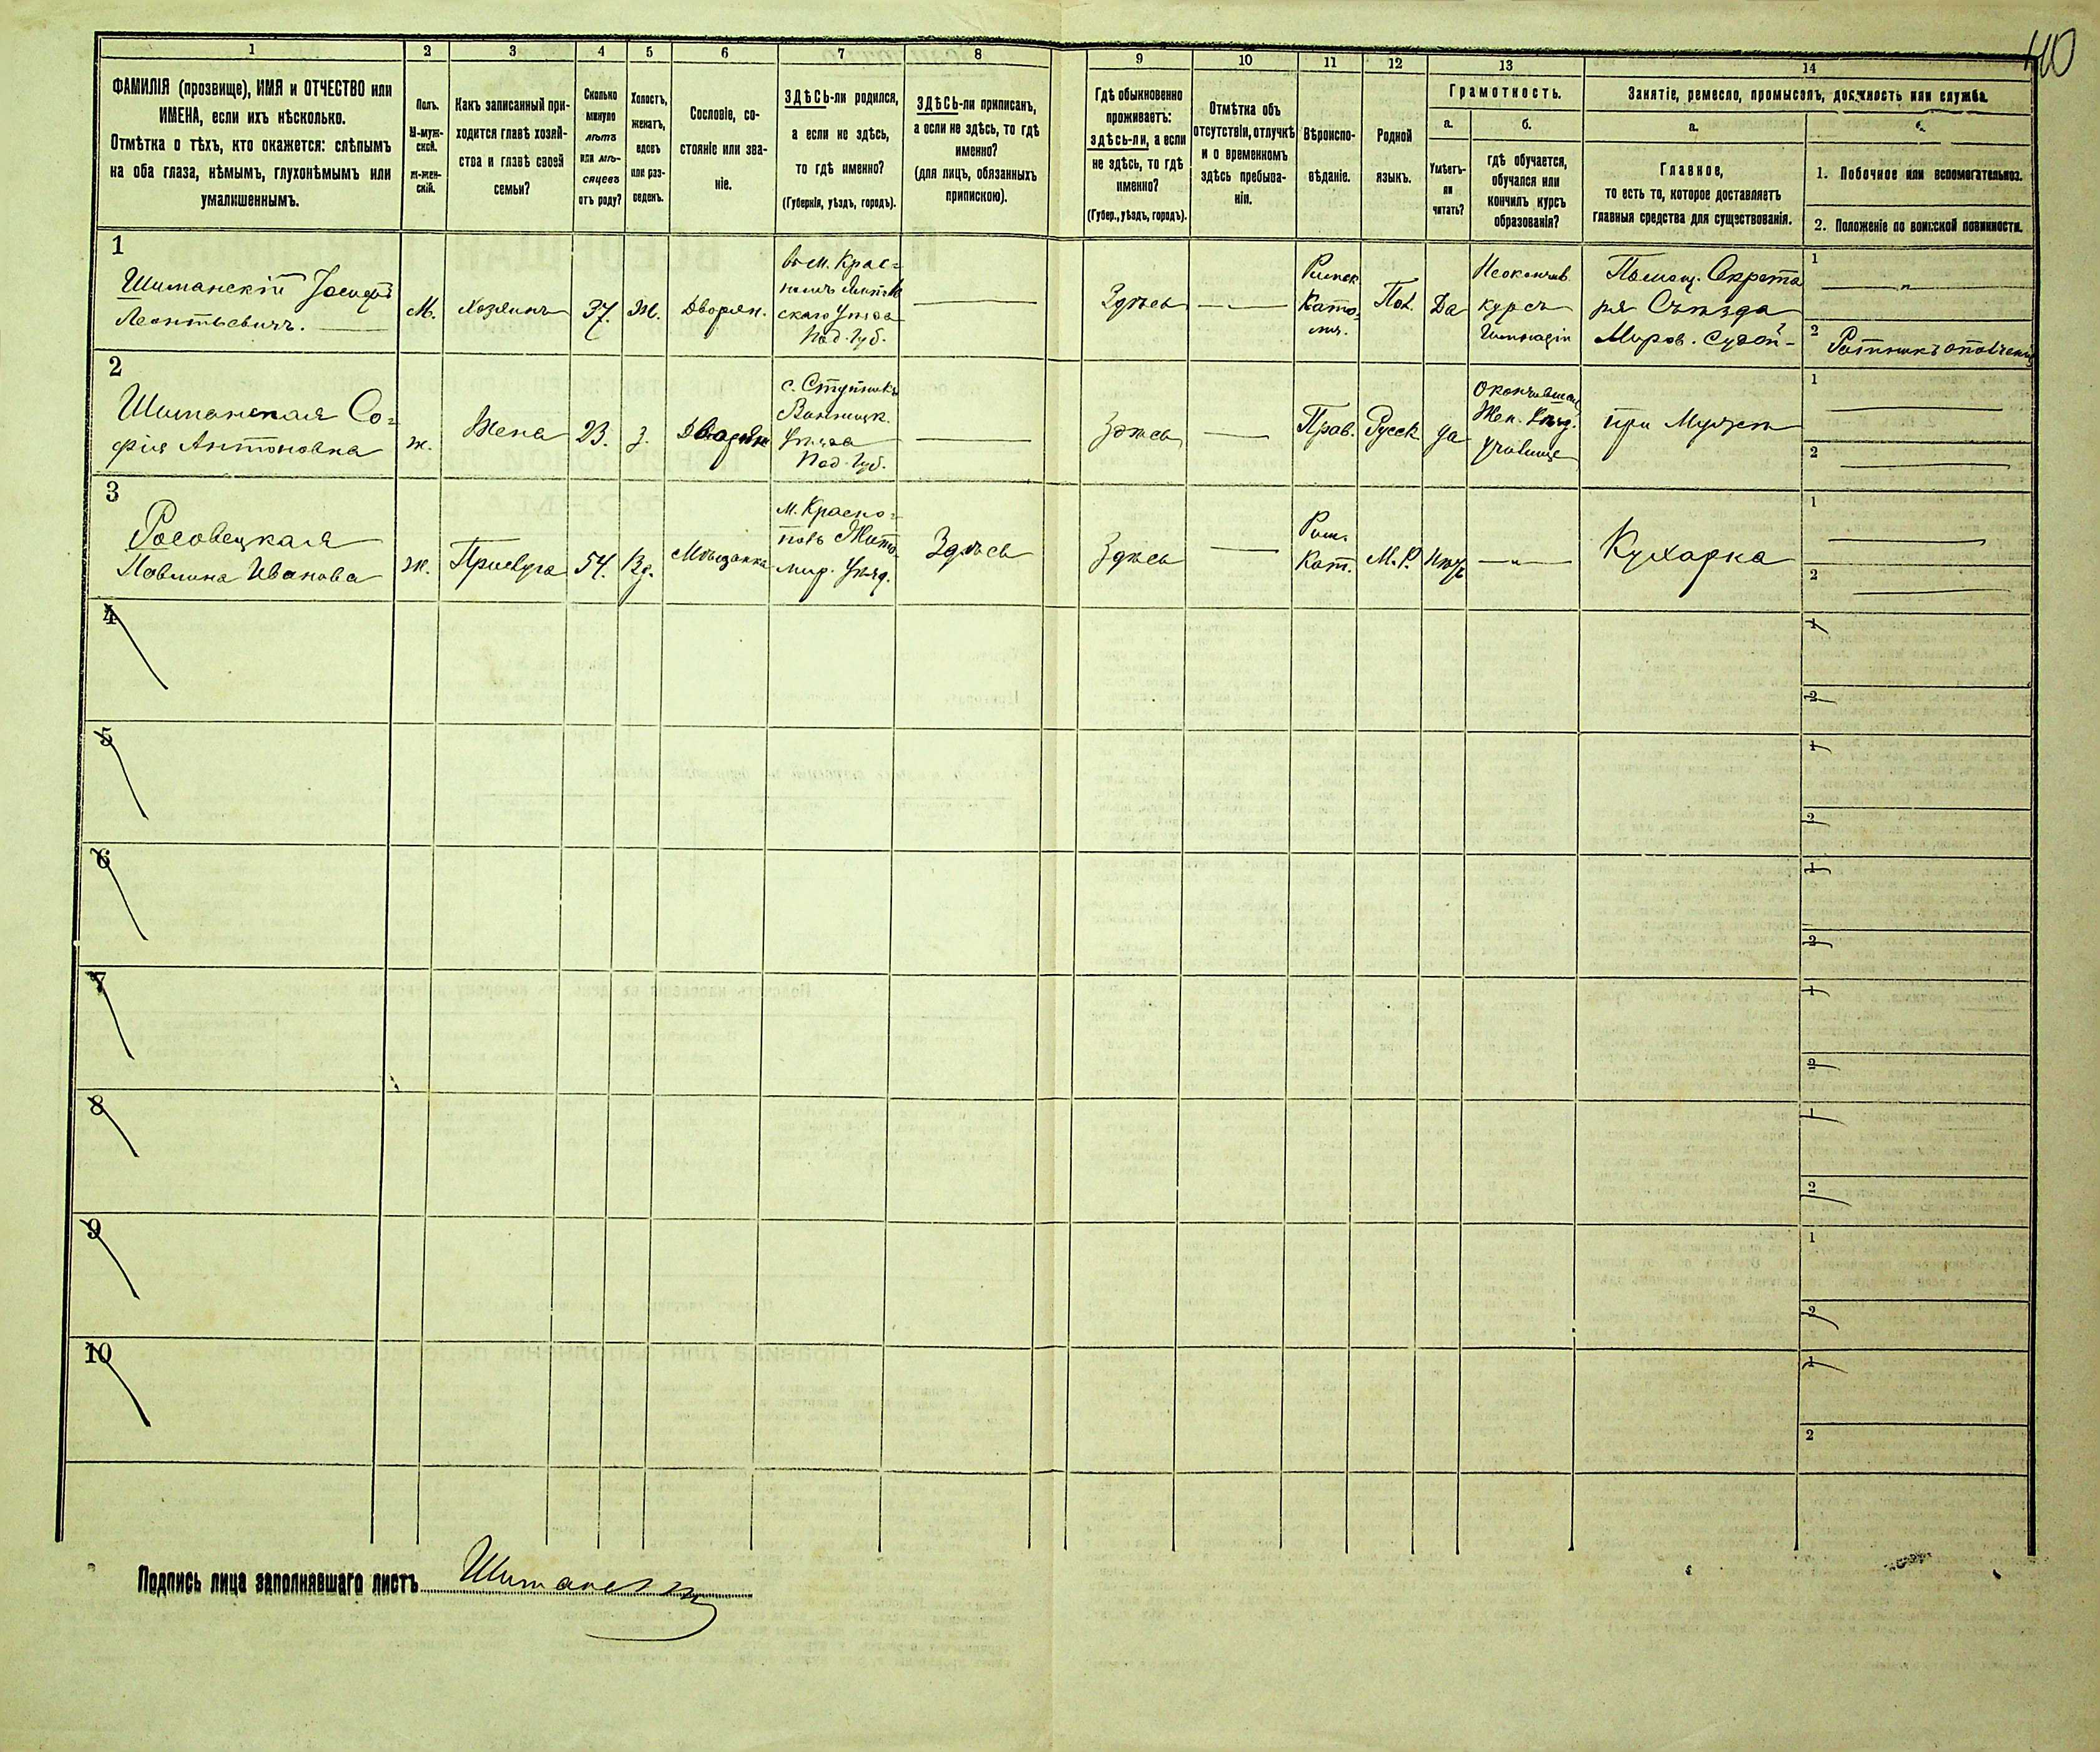 40
1
2
3
4
5
6
7
8
9
10
11
12
13
14
ФАМИЛІЯ (прозвище), ИМЯ и ОТЧЕСТВО или
ИМЕНА, если ихъ нѣсколько.
Отмѣтка о тѣхъ, кто окажется: слѣпымъ
на оба глаза, нѣмымъ, глухонѣмымъ или
умалишеннымъ.
Полъ.
М-муж-
ской.
Ж-жен-
скій.
Какъ записанный при-
ходится главѣ хозяй-
ства и главѣ своей
семьи?
Сколько
минуло
лѣтъ
или мѣ-
сяцевъ
отъ роду?
Холостъ,
женатъ,
вдовъ
или раз-
веденъ.
Сословіе, со-
стояніе или зва-
ніе.
ЗДѢСЬ-ли родился,
а если не здѣсь,
то гдѣ именно?
(Губернія, уѣздъ, городъ).
ЗДѢСЬ-ли приписанъ,
а если не здѣсь, то гдѣ
именно?
(для лицъ, обязанныхъ
припискою).
Гдѣ обыкновенно
проживаетъ:
ЗДѢСЬ-ли, а если
не здѣсь, то гдѣ
именно?
(Губер., уѣздъ, городъ).
Отмѣтка объ
отсутствіи, отлучкѣ
и о временномъ
здѣсь пребыва-
ніи.
Вѣроиспо-
вѣданіе.
Родной
языкъ.
Грамотность.
а.
Умѣетъ-
ли
читать?
б.
гдѣ обучается,
обучался или
кончилъ курсъ
образованія?
Занятіе, ремесло, промыселъ, должность или служба.
а.
Главное,
то есть то, которое доставляетъ
главныя средства для существованія.
1. Побочное или вспомогательное.
2. Положеніе по воинской повинности.
1
Шиманскій Іосифъ
Леонтьевичъ.
М.
Хозяинъ
37.
Ж.
Дворян.
Под. Губ.
Здѣсь
Римск
Като-
лич.
Пол.
Да
Неокончив.
курсъ
Гимназіи
Помощ. Секрета
ря Съѣзда
Миров. Судей
1
2 Ратникъ ополченія
2
Шиманская Со-
фія Антоновна
ж.
Жена
23.
з.
Дворян
Винницк.
Уѣзда
Под. Губ.
Здѣсь
Прав.
Русск
да
Окончившая
Жен.
Училище
при Мужѣ
1
2
3
Росовецкая
Павлина Иванова
ж.
Прислуга
54.
Вд.
Мѣщанка
м. Краспо-
поль Жито-
мир. Уѣзд.
Здѣсь
Здѣсь
Рим.
Кат.
М. Р.
Нѣтъ
Кухарка
1
2
4
1
2
5
1
2
6
1
2
7
1
2
8
1
2
9
1
2
10
1
2
Подпись лица заполнявшаго листъ Шиманскій